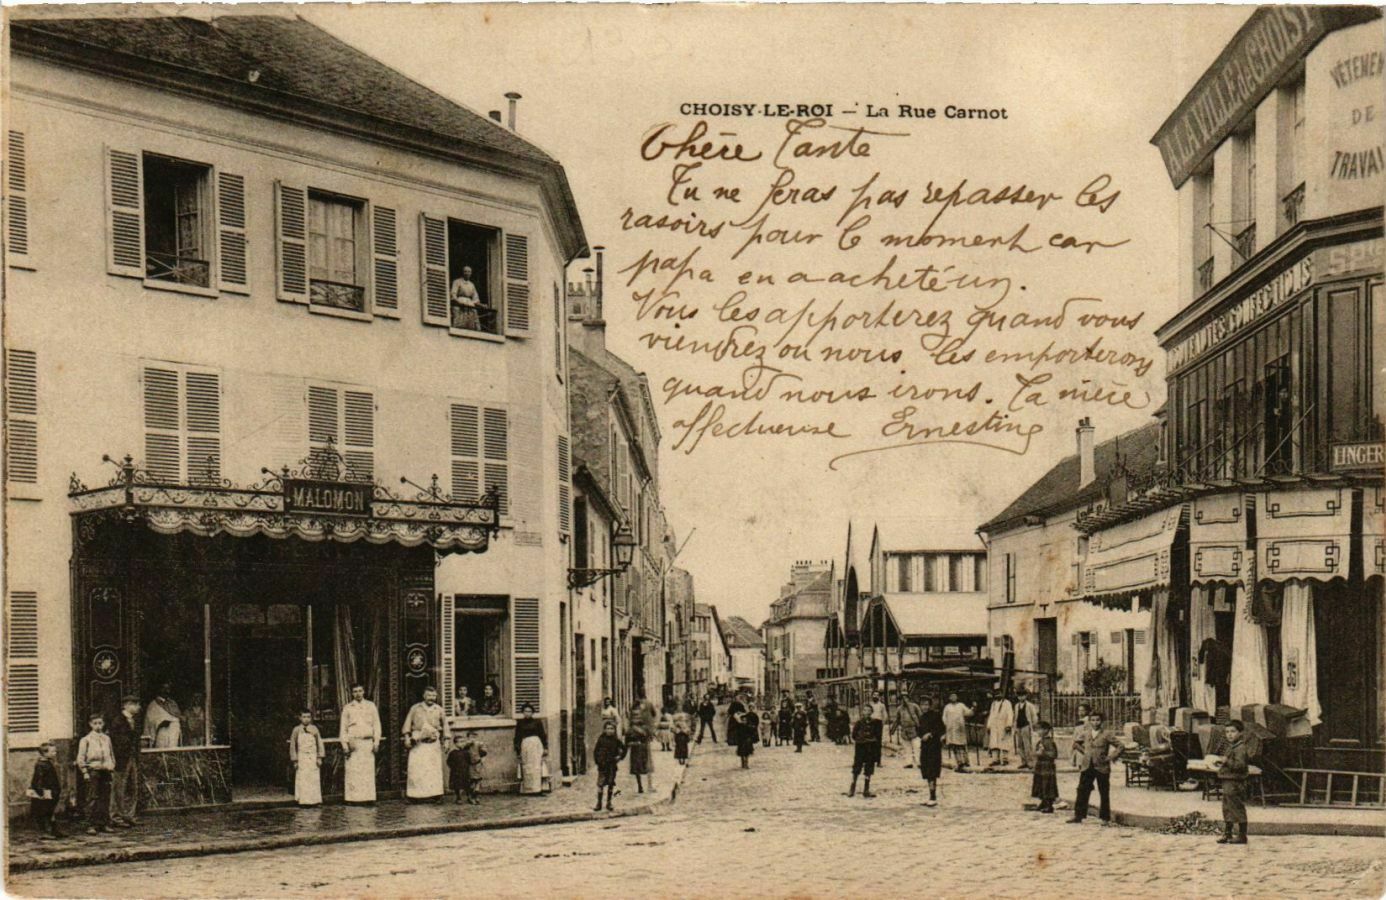 CHOISY-LE-ROI — La Rue Carnot
Chère Tante
Tu ne feras pas repasser les
rasoirs pour le moment car
papa en a acheté un.
Vous les apporterez quand vous
viendrez ou nous les emporterons
quand nous irons. Ta nièce
affectueuse Ernestine
MALOMON
A LA VILLE DE CHOISY
VÊTEMEN
DE
TRAVAI
CONFECTIONS
LINGER